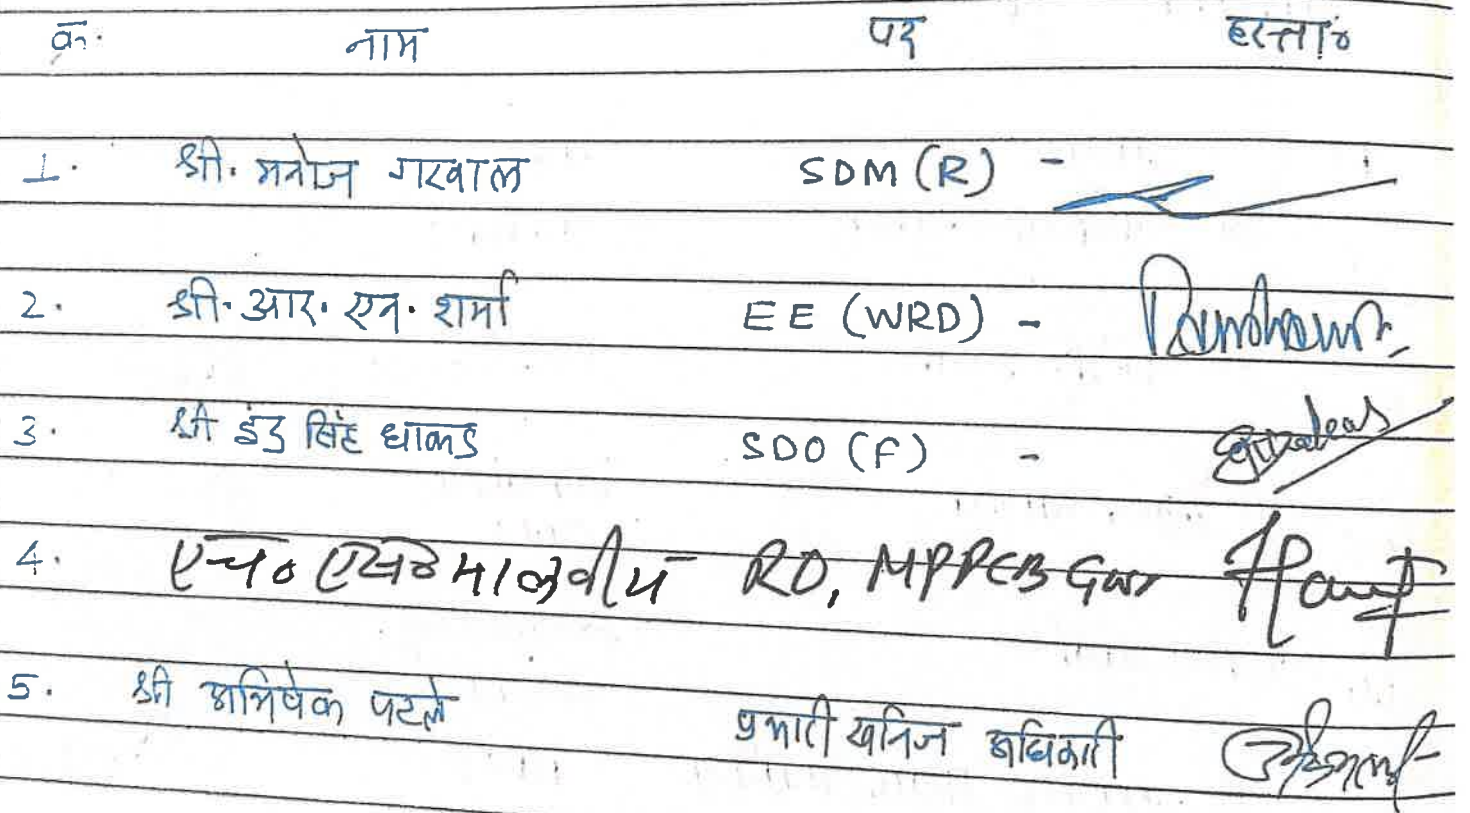 क्र. नाम पद हस्ता०
1. श्री. मनोज गरवाल SDM (R) -
2. श्री. आर. एन. शर्मा EE (WRD) -
3. श्री इंदु सिंह धाकड SDO (F) -
4. एच० एस० मालवीय RO, MPPCB Gwr
5. श्री अभिषेक पटले प्रभारी खनिज अधिकारी